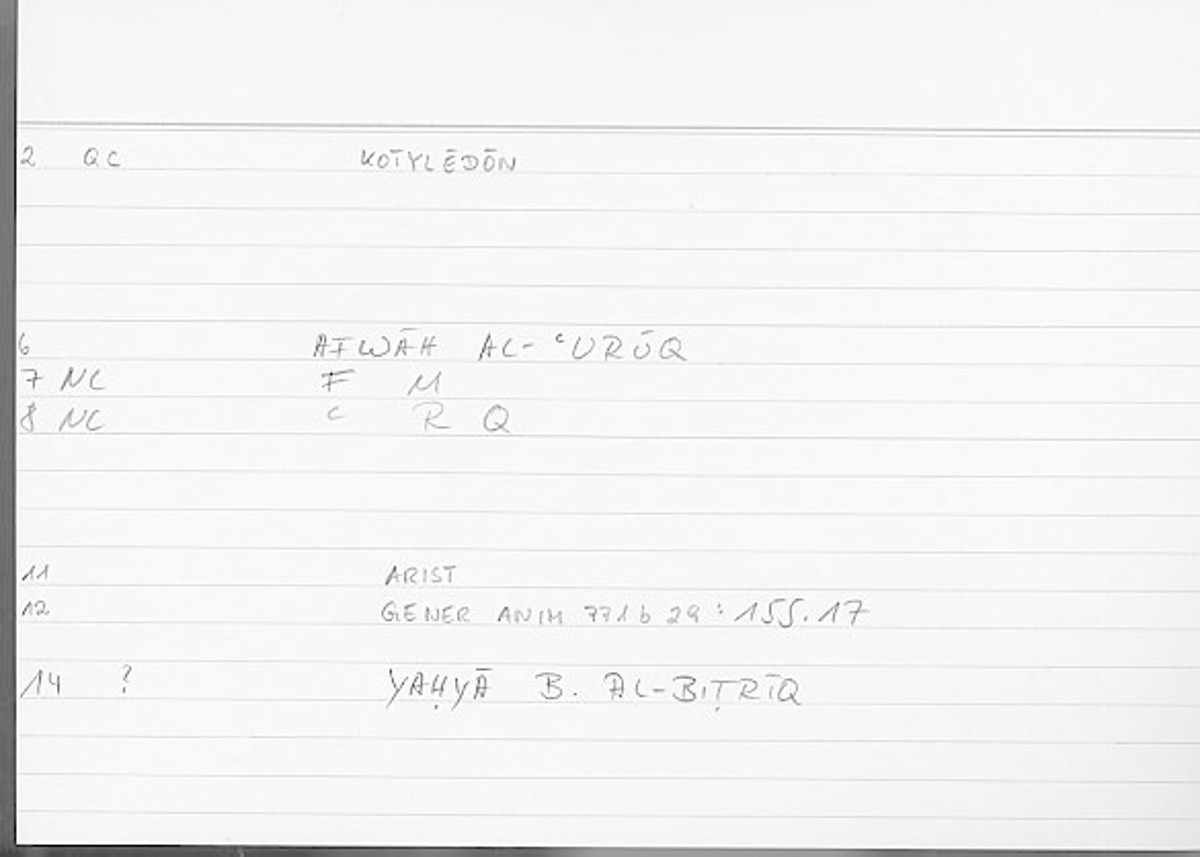 2 QC KOTYLĒDŌN
6 AFWĀH AL-ʿURŪQ
7 NC F M
8 NC ʿ R Q
11 ARIST
12 GENER ANIM 771 b 29 : 155.17
14 ? YAḤYĀ B. AL-BIṬRĪQ